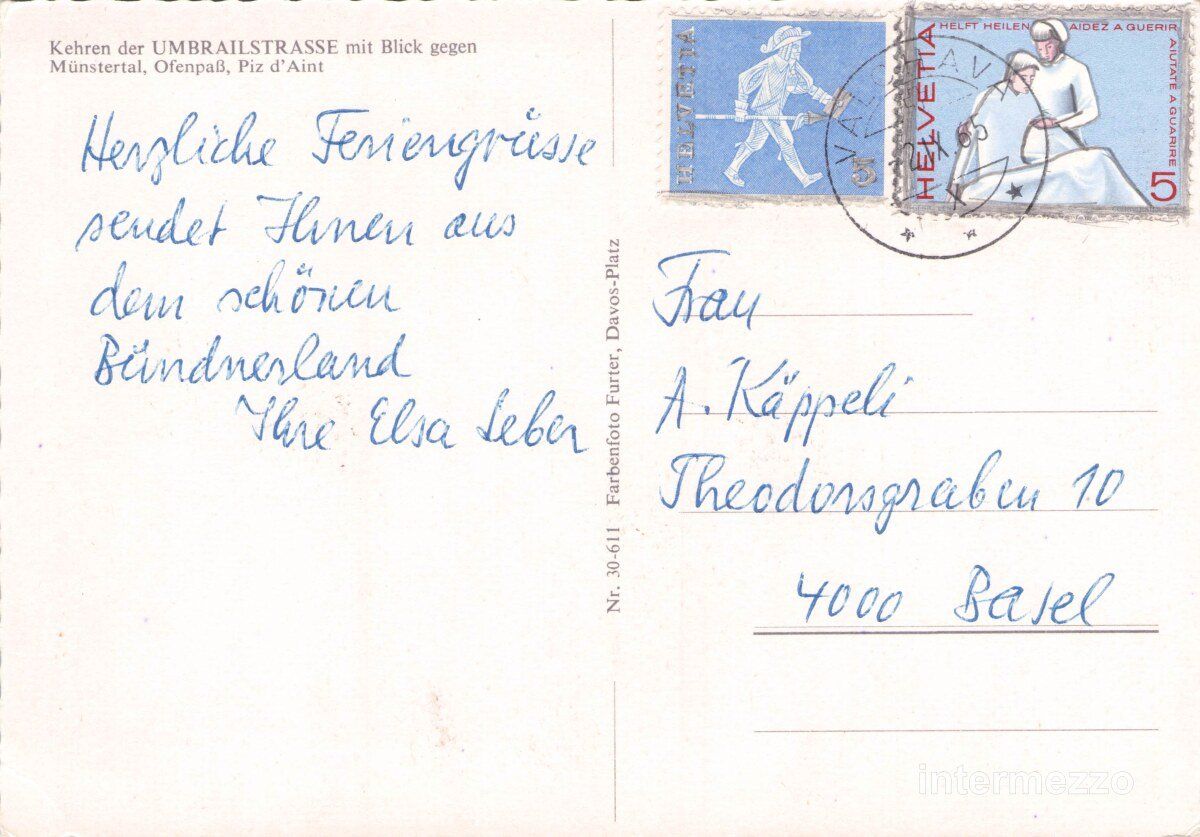 Kehren der UMBRAILSTRASSE mit Blick gegen
Münstertal, Ofenpaß, Piz d'Aint
Herzliche Feriengrüsse
sendet Ihnen aus
dem schönen
Bündnerland
Ihre Elsa Leber
Nr. 30-611 Farbenfoto Furter, Davos-Platz
HELVETIA
5
HELVETIA
HELFT HEILEN
AIDEZ A GUERIR
AIUTATE A GUARIRE
5
Frau
A. Käppeli
Theodorsgraben 10
4000 Basel
intermezzo